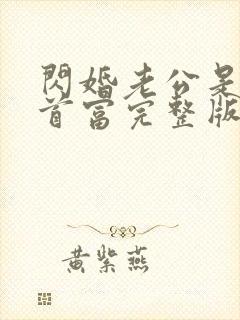 閃婚老公是
首富完整版
黄紫燕